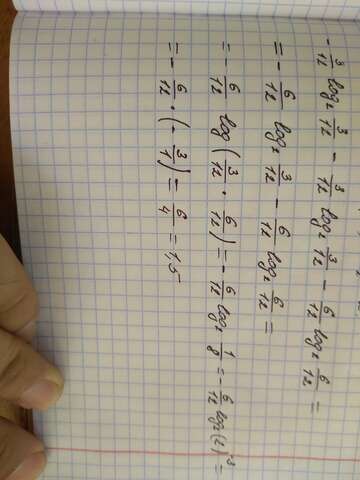 - 3/12 log₂ 3/12 - 3/12 log₂ 3/12 - 6/12 log₂ 6/12 =
= - 6/12 log₂ 3/12 - 6/12 log₂ 6/12 =
= - 6/12 log (3/12 · 6/12) = - 6/12 log₂ 1/8 = - 6/12 log (2)⁻³ =
= - 6/12 · (- 3/1) = 6/4 = 1,5